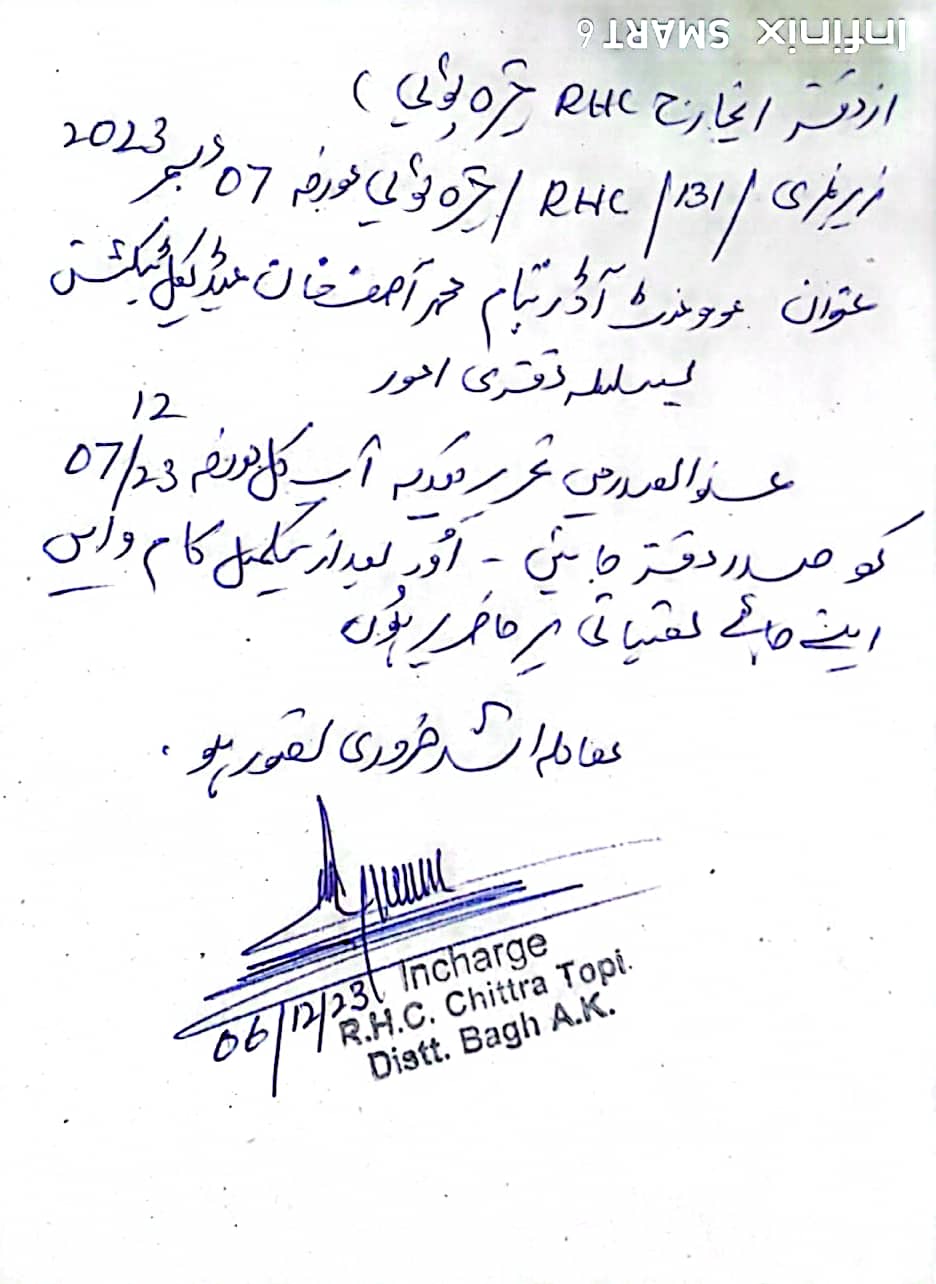 Infinix SMART 6
ازدفتر انچارج RHC چترہ ٹوپی )
زیرنمبری /131/ RHC /چترہ ٹوپی مورخہ 07 دسمبر 2023
عنوان موومنٹ آڈر بنام محمد آصف خان میڈیکل ٹیکنیشن
بسلسلہ دفتری امور
عنوالصدرمیں تحریر آپ کل مورخہ 07/12/23
کو صدر دفتر جائیں - اور بعد از تکمیل کام واپس
اپنے جائے تعیناتی پر حاضر ہوں
معاملہ اشد ضروری تصور ہو .
06/12/23
Incharge
R.H.C. Chittra Topi.
Distt. Bagh A.K.